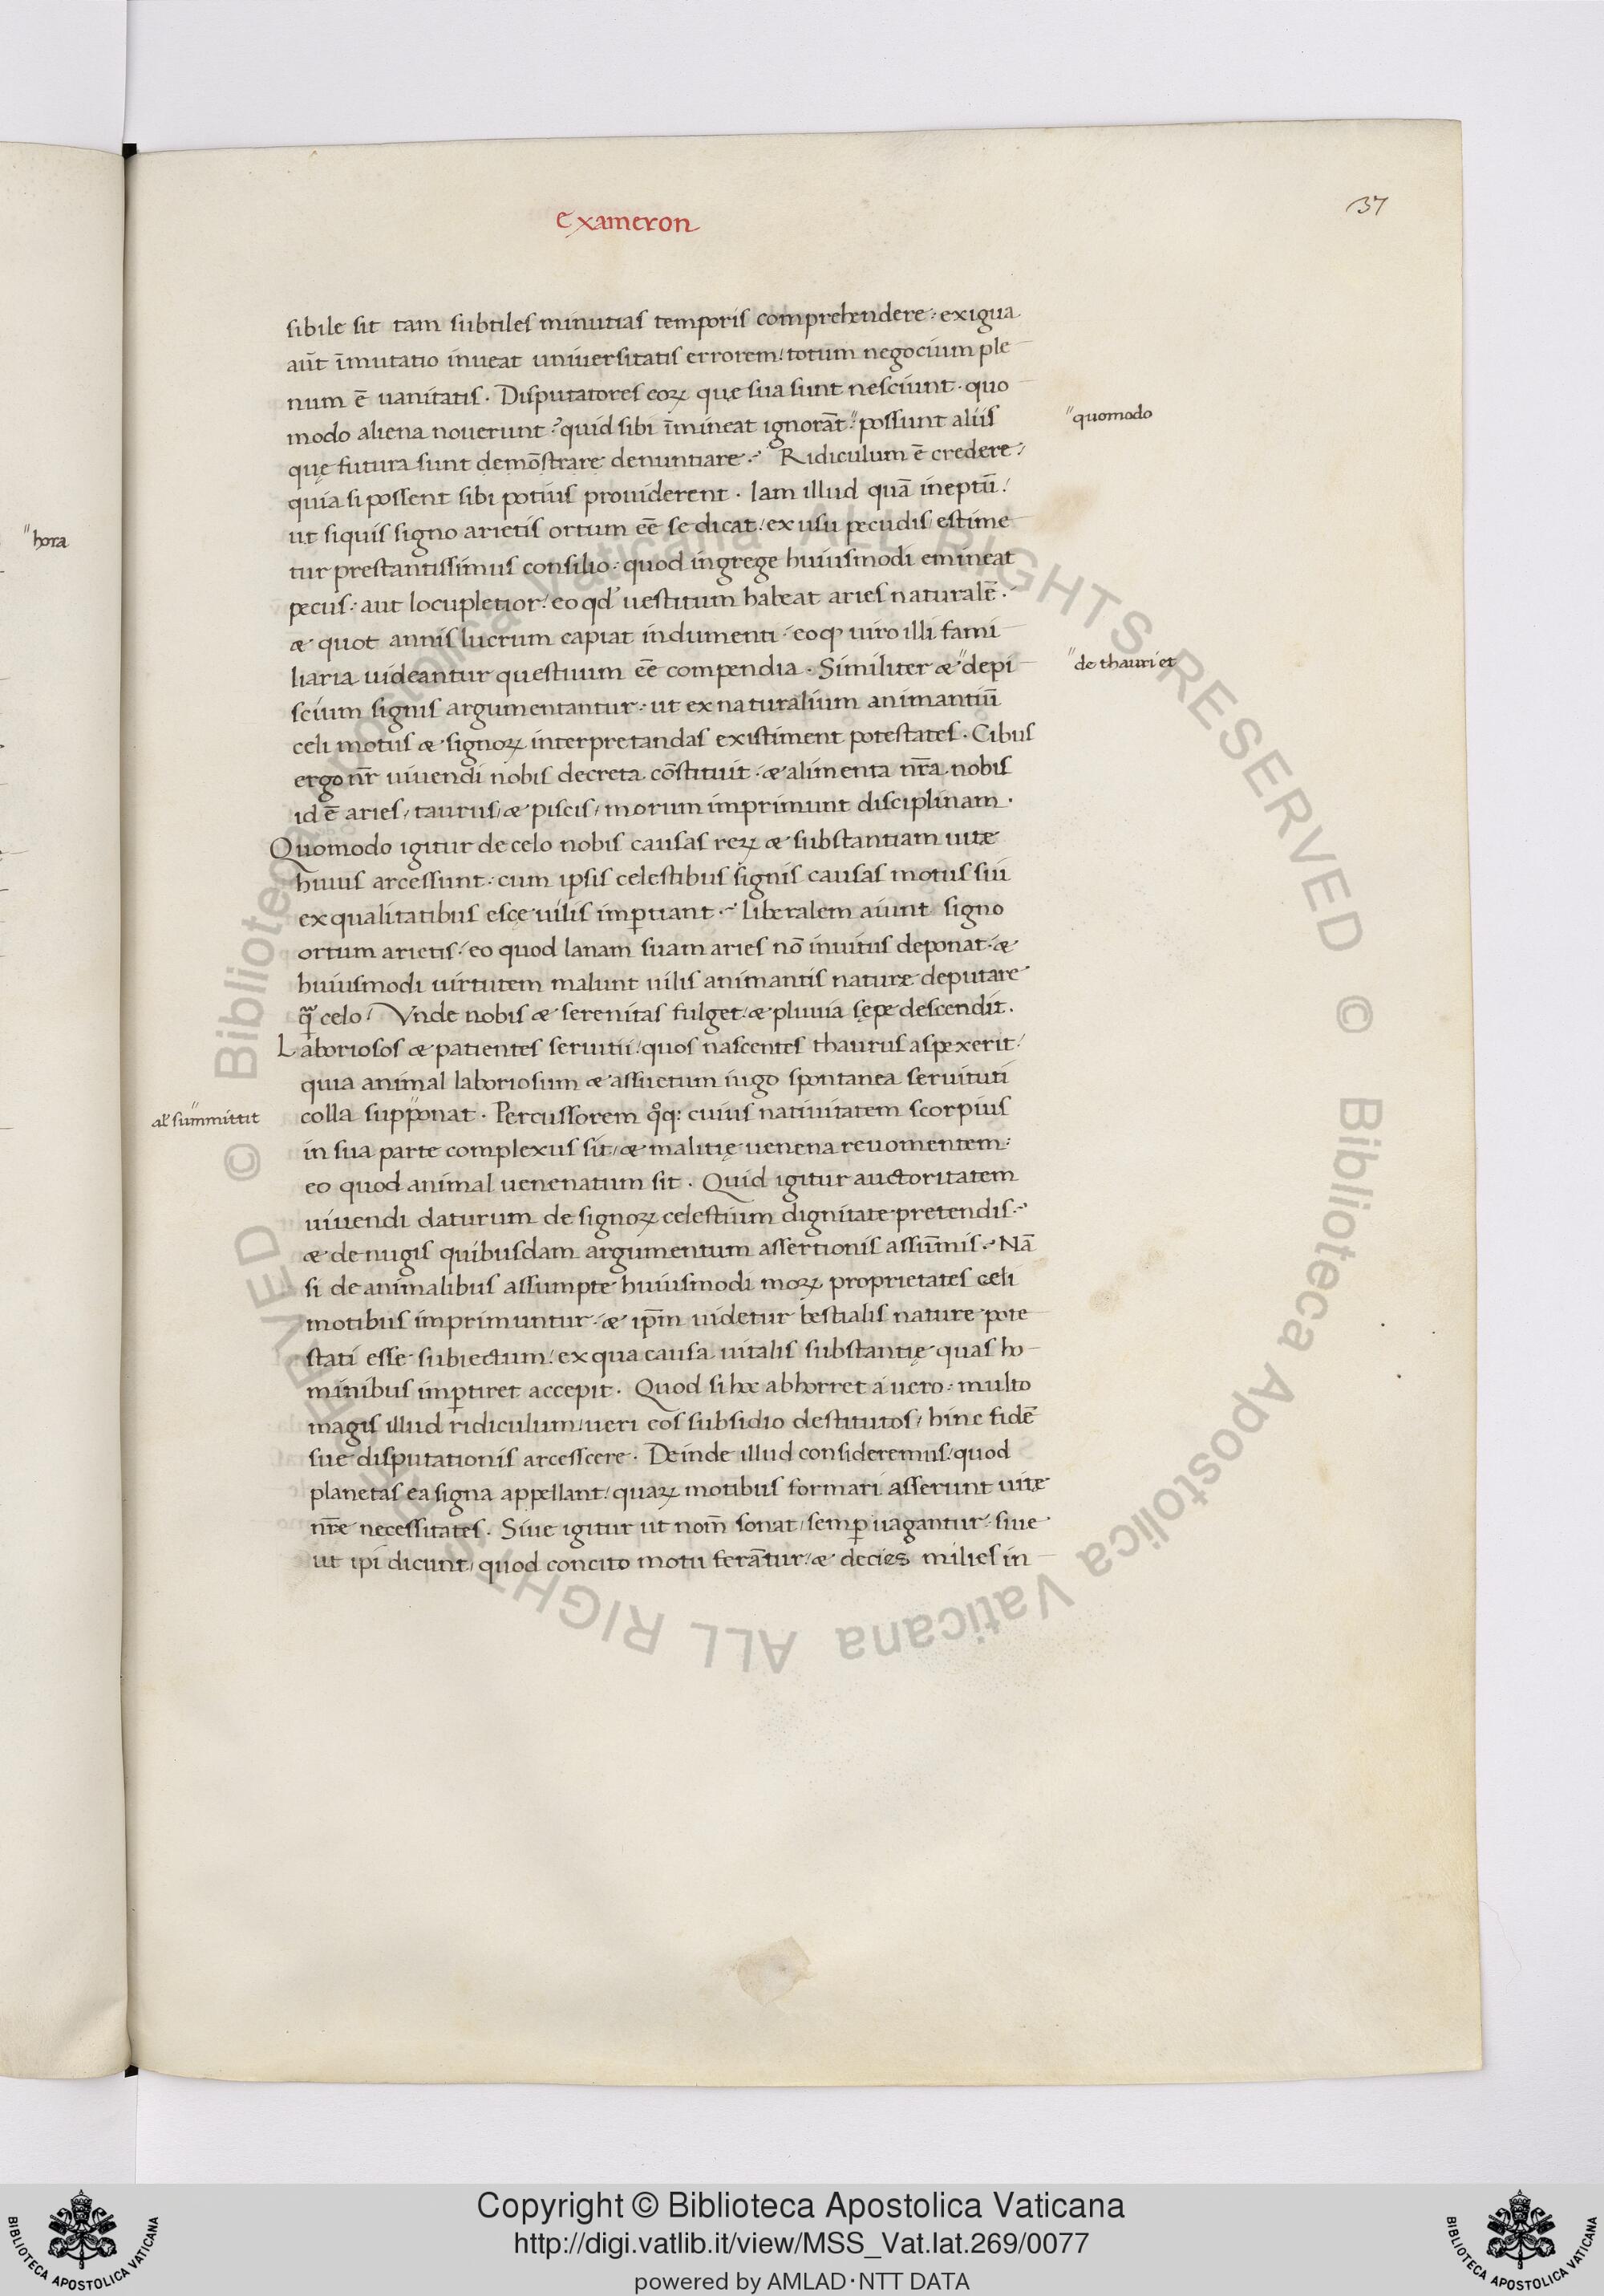 37
exameron
sibile sit tam subtiles minutias temporis comprehendere: exigua
aūt īmutatio inueat uniuersitatis errorem: totum negocium ple
num ē uanitatis. Disputatores eoꝝ quę sua sunt nesciunt. quo
modo aliena nouerunt? quid sibi īmineat ignorāt: " possunt aliis
"quomodo
quę futura sunt demōstrare denuntiare. Ridiculum ē credere:
quia si possent sibi potius prouiderent. Iam illud quā ineptū!
"hora
ut siquis signo arietis ortum eē se dicat: ex usu pecudis estime
tur prestantissimus consilio: quod ingrege huiusmodi emineat
pecus: aut locupletior: eo qd' uestitum habeat aries naturalē:
æ quot annis lucrum capiat indumenti: eoqꝫ uiro illi fami
liaria uideantur questuum eē compendia. Similiter æ "depi
"de thauri et
scium signis argumentantur: ut ex naturalium animantiū
celi motus æ signoꝝ interpretandas existiment potestates. Cibus
ergo nr̄ uiuendi nobis decreta cōstituit: æ alimenta nr̄a nobis
id ē aries, taurus, æ piscis, morum imprimunt disciplinam.
Quomodo igitur de celo nobis causas reꝝ æ substantiam uitę
huius arcessunt: cum ipsis celestibus signis causas motus sui
ex qualitatibus escę uilis imꝑtiant. Liberalem aiunt signo
ortum arietis: eo quod lanam suam aries nō inuitus deponat: æ
huiusmodi uirtutem malunt uilis animantis naturę deputare
qᷓ celo! Vnde nobis æ serenitas fulget: æ pluuia sępe descendit.
Laboriosos æ patientes seruitii: quos nascentes thaurus aspexerit:
quia animal laboriosum æ assuetum iugo spontanea seruituti
colla supponat. Percussorem qͦq: cuius natiuitatem scorpius
al' summittit
in sua parte complexus sit, æ malitię uenena reuomentem:
eo quod animal uenenatum sit. Quid igitur auctoritatem
uiuendi daturum de signoꝝ celestium dignitate pretendis:
æ de nugis quibusdam argumentum assertionis assūmis. Nā
si de animalibus assumpte huiusmodi moꝝ proprietates celi
motibus imprimuntur: æ ip̄m uidetur bestialis nature pote
stati esse subiectum: ex qua causa uitalis substantię quas ho
minibus imꝑtiret accepit. Quod si hoc abhorret a uero: multo
magis illud ridiculum: ueri eos subsidio destitutos, hinc fidē
sue disputationis arcesscere. Deinde illud consideremus: quod
planetas ea signa appellant: quaꝝ motibus formari asserunt uitę
nr̄e necessitates. Siue igitur ut nom̄ sonat, semꝑ uagantur: siue
ut ipi dicunt, quod concito motu ferāntur: æ decies milies in
Copyright © Biblioteca Apostolica Vaticana
http://digi.vatlib.it/view/MSS_Vat.lat.269/0077
powered by AMLAD·NTT DATA
BIBLIOTECA APOSTOLICA VATICANA
BIBLIOTECA APOSTOLICA VATICANA
© Biblioteca Apostolica Vaticana ALL RIGHTS RESERVED © Biblioteca Apostolica Vaticana ALL RIGHTS RESERVED